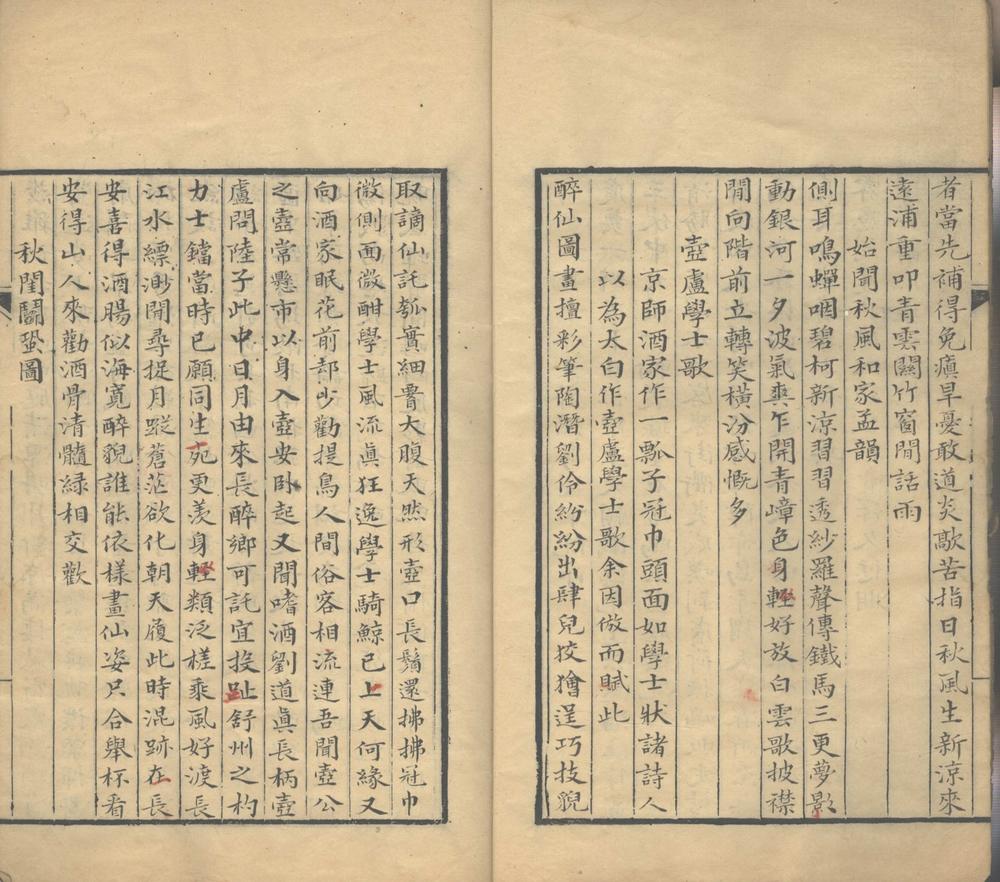 者當先補得免瘨旱憂敢道炎歊苦指日秋風生新涼來
遠浦重叩青雲關竹窗閒話雨
始聞秋風和家孟韻
側耳鳴蟬咽碧柯新涼習習透紗羅聲傳鐵馬三更夢影
動銀河一夕波氣爽乍開青嶂色身輕好放白雲歌披襟
閒向階前立轉笑橫汾感慨多
壺盧學士歌
京師酒家作一瓢子冠巾頭面如學士狀諸詩人
以為太白作壺盧學士歌余因倣而賦此
醉仙圖畫擅彩筆陶潛劉伶紛紛出肆兒狡獪逞巧技貌
取謫仙託瓠實細腰大腹天然形壺口長鬚還拂拂冠巾
微側面微酣學士風流眞狂逸學士騎鯨已上天何緣又
向酒家眠花前却少勸提鳥人間俗客相流連吾聞壺公
之壺常懸市以身入壺安卧起又聞嗜酒劉道眞長柄壺
盧問陸子此中日月由來長醉鄉可託宜投趾舒州之杓
力士鐺當時已願同生死更羨身輕類泛槎乘風好渡長
江水縹渺閒尋捉月蹤蒼茫欲化朝天履此時混跡在長
安喜得酒腸似海寬醉貌誰能依樣畫仙姿只合舉杯看
安得山人來勸酒骨清髓緑相交歡
秋閨鬭蛩圖